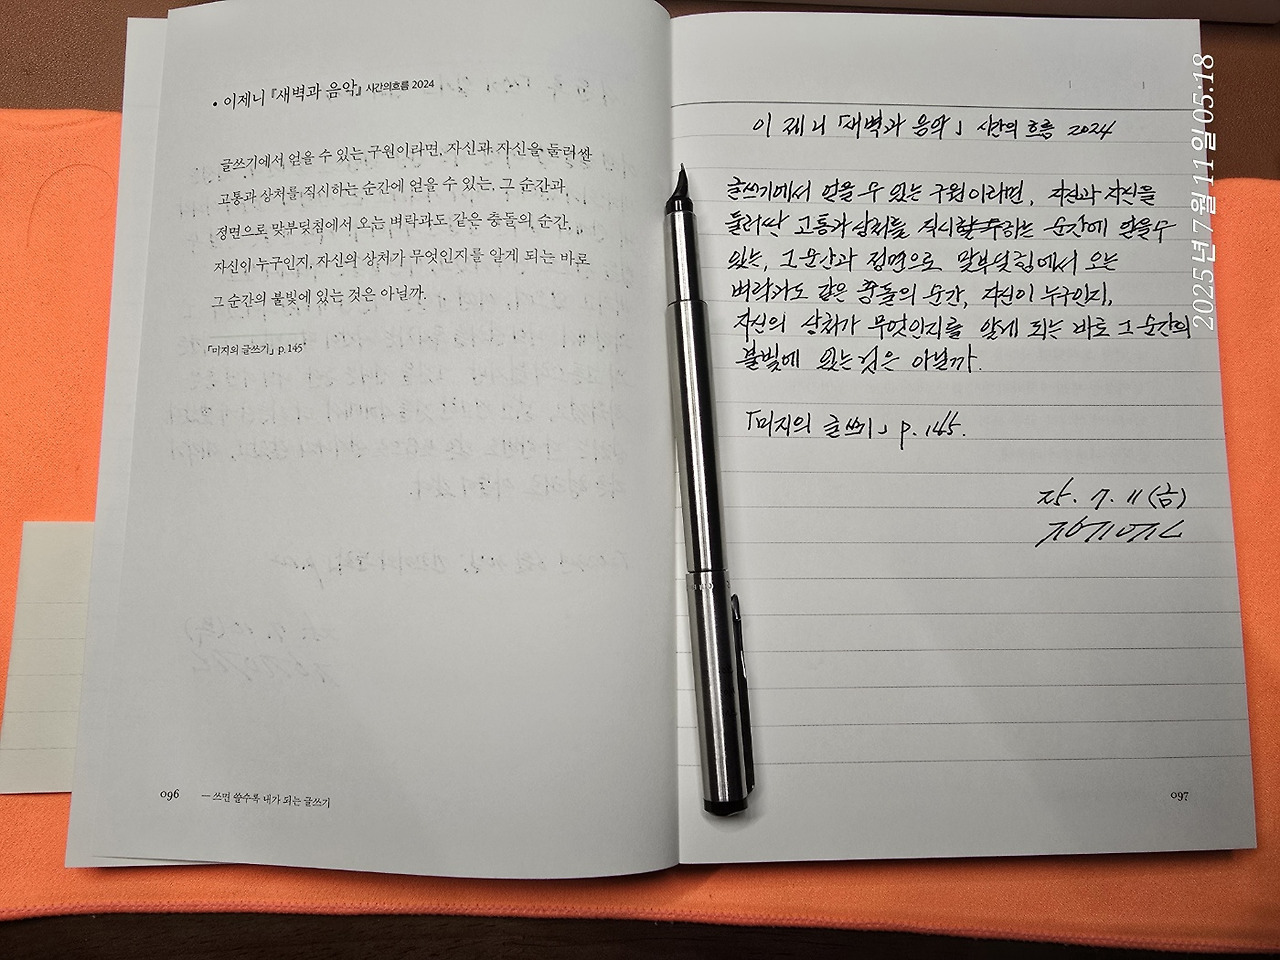 • 이제니 『새벽과 음악』 시간의흐름 2024
글쓰기에서 얻을 수 있는 구원이라면, 자신과 자신을 둘러싼
고통과 상처를 직시하는 순간에 얻을 수 있는, 그 순간과
정면으로 맞부딪침에서 오는 벼락과도 같은 충돌의 순간,
자신이 누구인지, 자신의 상처가 무엇인지를 알게 되는 바로
그 순간의 불빛에 있는 것은 아닐까.
「미지의 글쓰기」 p.145
096 — 쓰면 쓸수록 내가 되는 글쓰기
이제니 「새벽과 음악」 시간의 흐름 2024
글쓰기에서 얻을 수 있는 구원이라면, 자신과 자신을
둘러싼 고통과 상처를 직시하는 순간에 얻을 수
있는, 그 순간과 정면으로 맞부딪침에서 오는
벼락과도 같은 충돌의 순간, 자신이 누구인지,
자신의 상처가 무엇인지를 알게 되는 바로 그 순간의
불빛에 있는 것은 아닐까.
「미지의 글쓰기」 p.145.
25. 7. 11 (금)
097
2025년 7월 11일 05:18